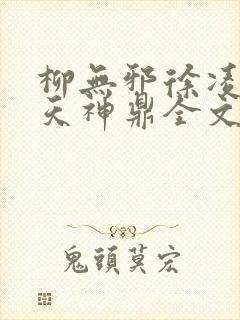 柳無邪徐凌
天神鼎全文
鬼頭莫宏